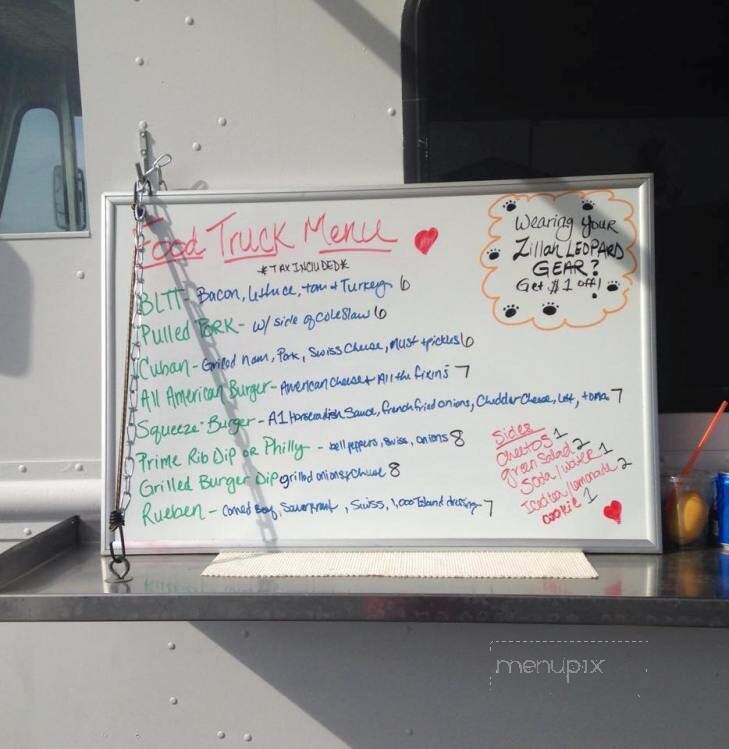 Food Truck Menu
*TAX INCLUDED*
BLTT - Bacon, lettuce, tom + Turkey 6
Pulled PORK - w/ side of coleslaw 6
Cuban - Grilled Ham, Pork, Swiss Cheese, Must + pickles 6
All American Burger - American Cheese + All the fixins 7
Squeeze Burger - A1 Horseradish Sauce, french fried onions, Cheddar Cheese, Let, + toma 7
Prime Rib Dip or Philly - bell peppers, Swiss, onions 8
Grilled Burger Dip grilled onions + Cheese 8
Rueben - Corned Beef, Sauerkraut, Swiss, 1,000 Island dressing 7
Wearing your
Zillah LEOPARD
GEAR?
Get $1 off!
Sides
Cheetos 1
green Salad 2
Soda / water 1
Iced tea / lemonade 2
cookie 1
menupix